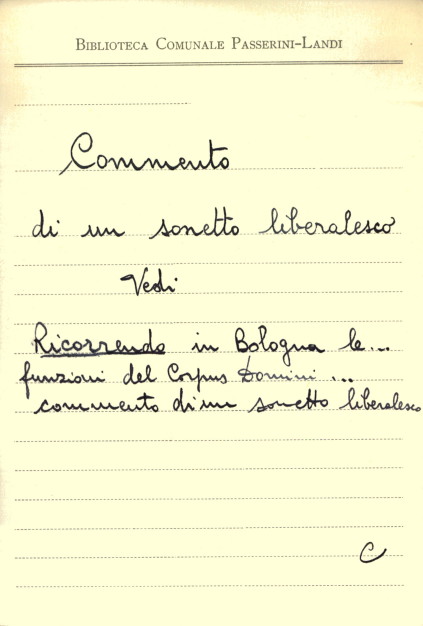 BIBLIOTECA COMUNALE PASSERINI-LANDI
Commento
di un sonetto liberalesco
Vedi
Ricorrendo in Bologna le...
funzioni del Corpus Domini ...
commento di un sonetto liberalesco
C